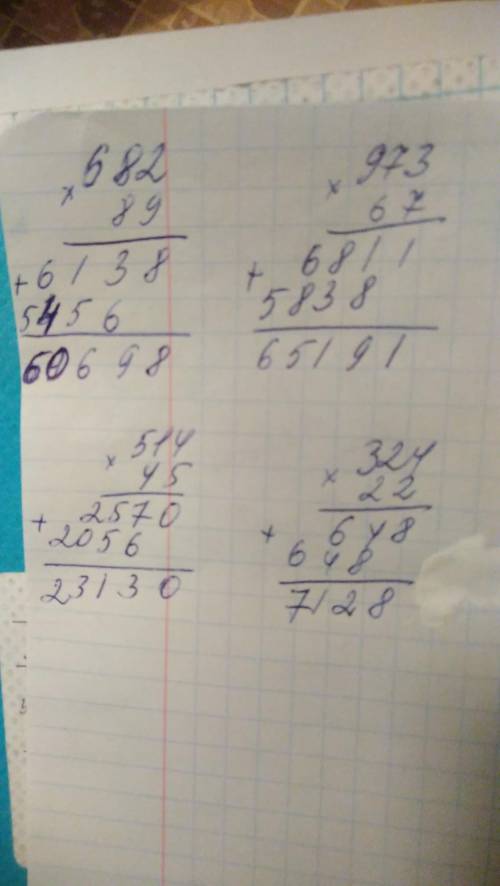 × 682
89
+ 6138
5456
60698
× 973
67
+ 6811
5838
65191
× 514
45
+ 2570
2056
23130
× 324
22
+ 648
648
7128